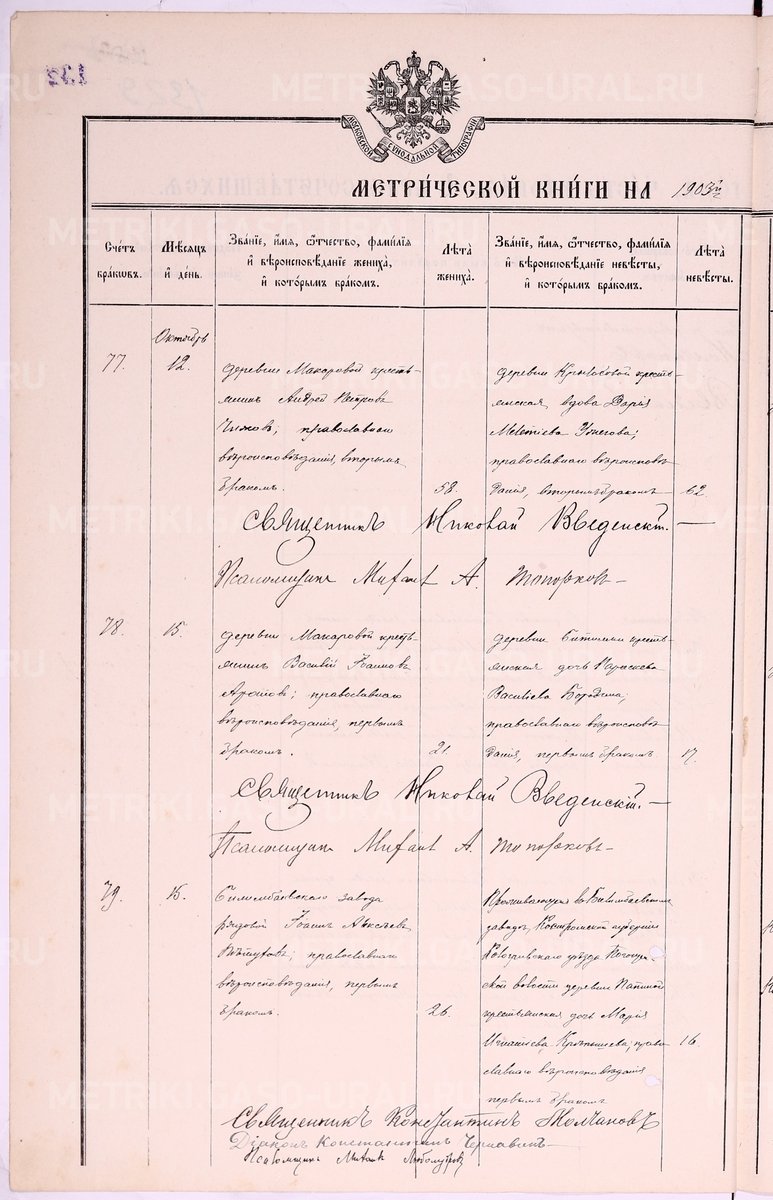 МОСКОВСКОЙ СѴНОДАЛЬНОЙ ТИПОГРАФІИ
МЕТРИ́ЧЕСКОЙ КНИ́ГИ НА 1903й
Сче́тъ бра́кѡвъ.
Мѣ́сѧцъ и҆ де́нь.
Зва́нїе, и҆́мѧ, ѻ҆́тчество, фами́лїѧ и҆ вѣроисповѣ́данїе жениха̀, и҆ кото́рымъ бра́комъ.
Лѣ́та жениха̀.
Зва́нїе, и҆́мѧ, ѻ҆́тчество, фами́лїѧ и҆ вѣроисповѣ́данїе невѣ́сты, и҆ кото́рымъ бра́комъ.
Лѣ́та невѣ́сты.
Октябрь
77.
12.
деревни Макаровой кресть-
янинъ Андрей Петровъ
Чижовъ, православнаго
вѣроисповѣданія, вторымъ
бракомъ.
58.
деревни Крылосовой кресть-
янская вдова Дарія
Мелетіева Ужегова;
православнаго вѣроисповѣ-
данія, вторымъ бракомъ
62
Священникъ Николай Введенскій.
Псаломщикъ Михаилъ А. Топорковъ
78.
15.
деревни Макаровой кресть-
янинъ Василій Іоанновъ
православнаго
вѣроисповѣданія, первымъ
бракомъ.
21.
деревни Битимки кресть-
янская дочь Параскева
Васильева Бородина;
православнаго вѣроисповѣ-
данія, первымъ бракомъ.
17.
Священникъ Николай Введенскій.
Псаломщикъ Михаилъ А. Топорковъ
79.
15.
Билимбаевскаго завода
рядовой Іоаннъ Алексѣевъ
православнаго
вѣроисповѣданія, первымъ
бракомъ.
26.
Проживающая въ Билимбаевскомъ
заводѣ, Костромской губерніи
Кологривскаго уѣзда
волости деревни
крестьянская дочь Марія
Игнатіева право-
славнаго вѣроисповѣданія
первымъ бракомъ
16.
Священникъ Константинъ Толмачовъ
Діаконъ Константинъ Чернавинъ
Псаломщикъ
METRIKI.GASO-URAL.RU